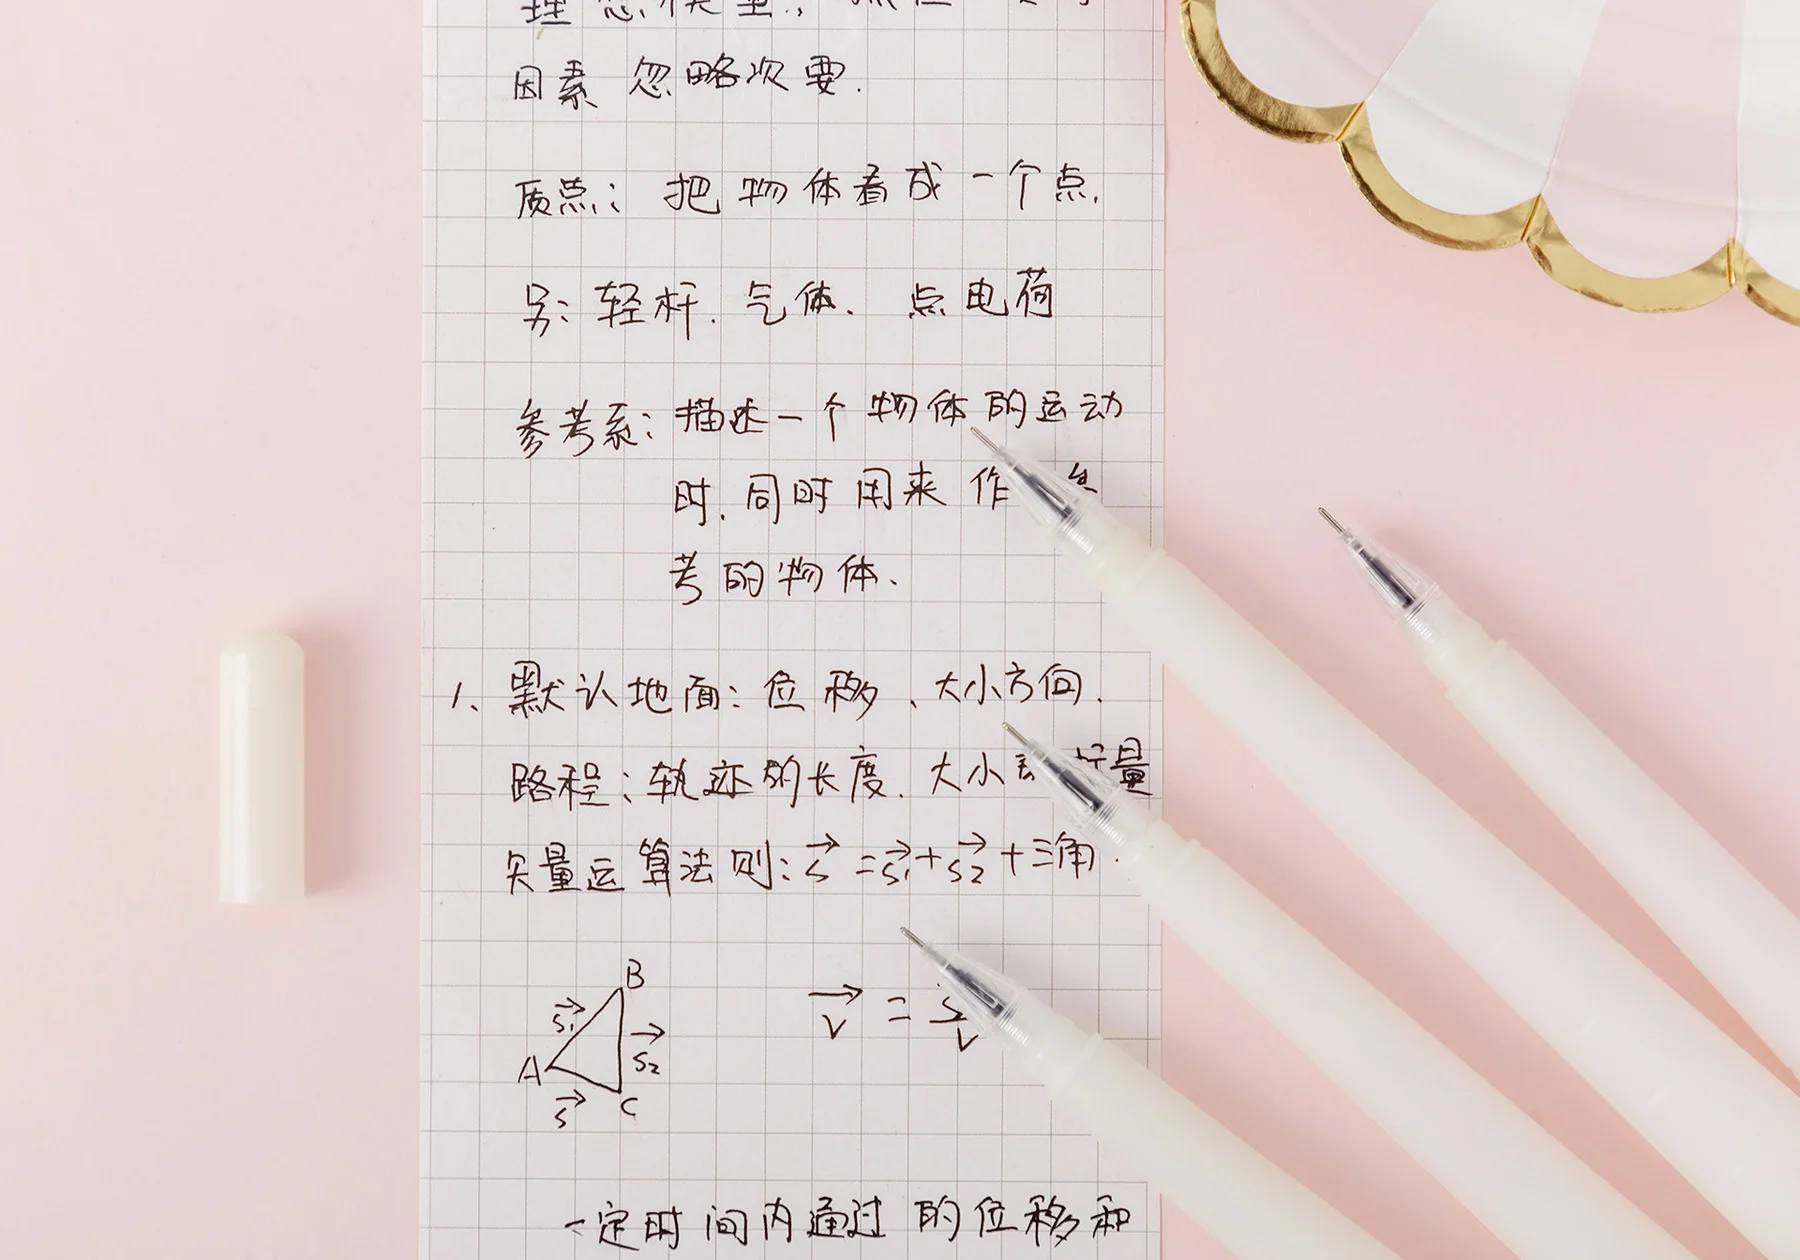 理想模型:
因素 忽略次要.
质点: 把物体看成一个点.
另: 轻杆. 气体. 点电荷
参考系: 描述一个物体的运动
时. 同时用来作
考的物体.
1、默认地面: 位移、大小方向.
路程: 轨迹的长度. 大小 量
矢量运算法则: s⃗ = s₁⃗ + s₂⃗ + 三角.
B
s₁⃗
A
s₂⃗
s⃗
C
v⃗ = s/v
一定时间内通过的位移和